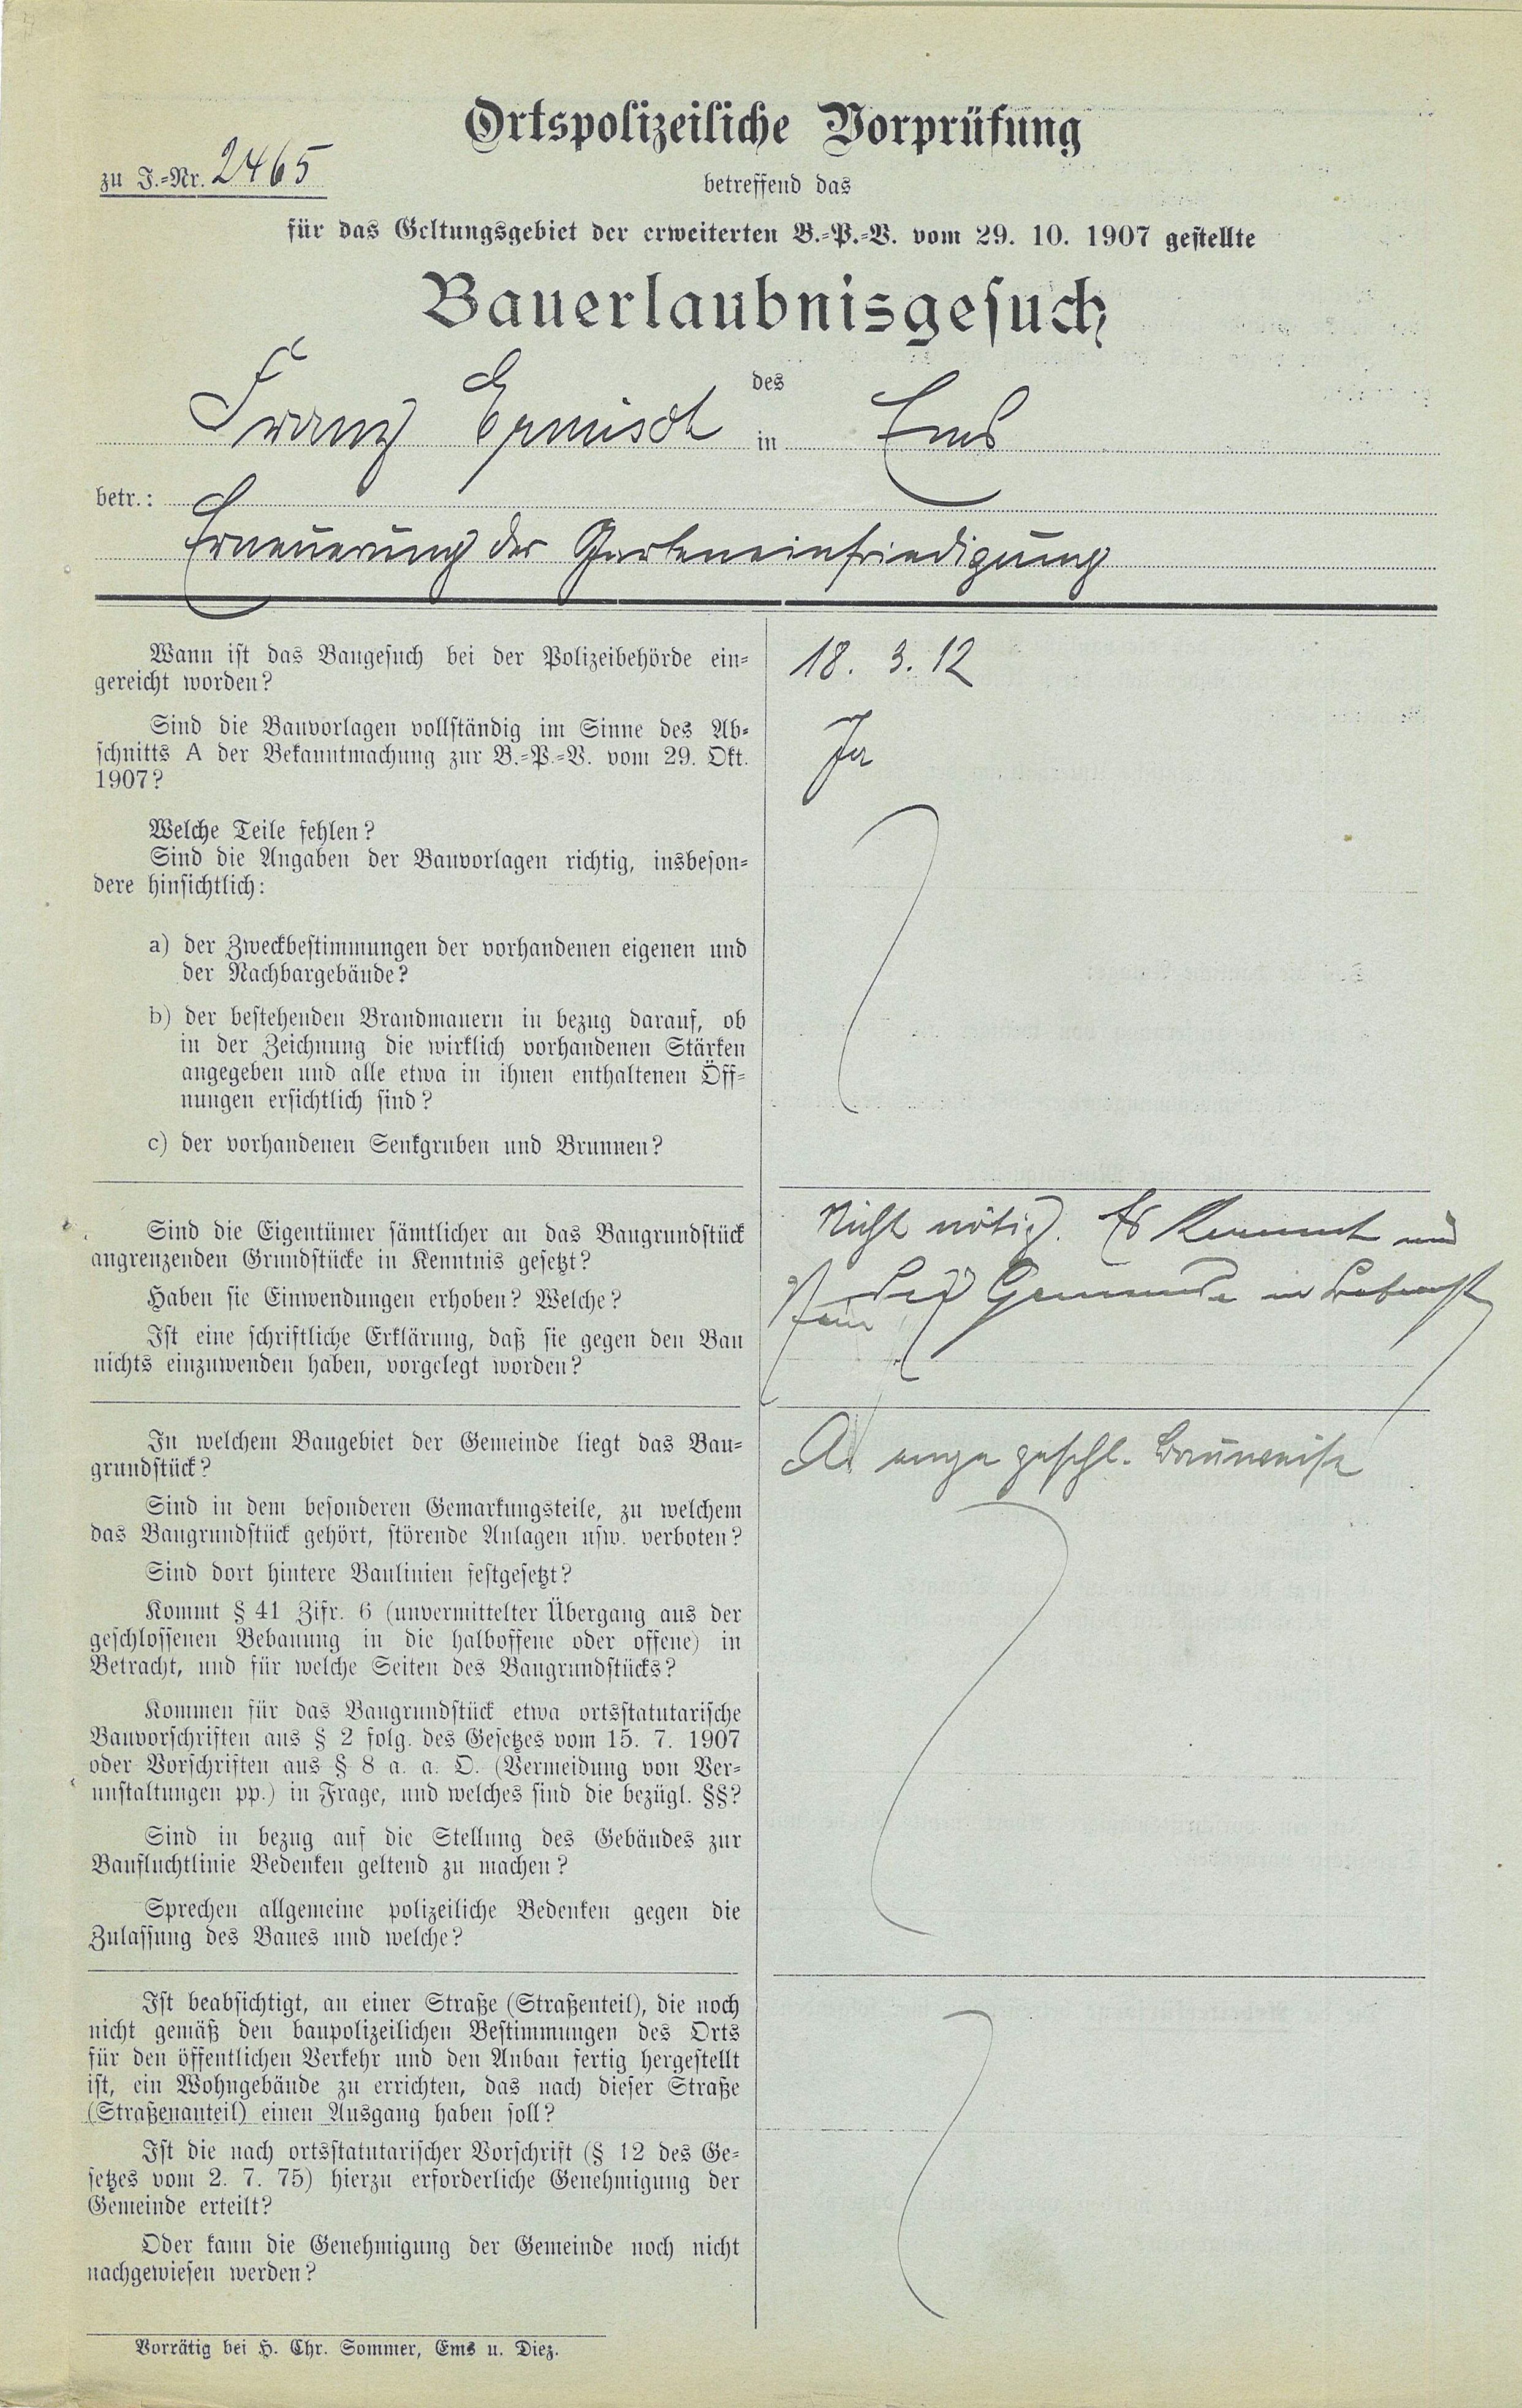 Ortspolizeiliche Vorprüfung
zu J.-Nr. 2465
betreffend das
für das Geltungsgebiet der erweiterten B.-P.-V. vom 29. 10. 1907 gestellte
Bauerlaubnisgesuch
des
Franz Ermisch in Ems
betr.:
Erneuerung der Garteneinfriedigung
Wann ist das Baugesuch bei der Polizeibehörde ein-
gereicht worden?
18. 3. 12
Sind die Bauvorlagen vollständig im Sinne des Ab-
schnitts A der Bekanntmachung zur B.-P.-V. vom 29. Okt.
1907?
Ja
Welche Teile fehlen?
Sind die Angaben der Bauvorlagen richtig, insbeson-
dere hinsichtlich:
a) der Zweckbestimmungen der vorhandenen eigenen und
der Nachbargebäude?
b) der bestehenden Brandmauern in bezug darauf, ob
in der Zeichnung die wirklich vorhandenen Stärken
angegeben und alle etwa in ihnen enthaltenen Öff-
nungen ersichtlich sind?
c) der vorhandenen Senkgruben und Brunnen?
Sind die Eigentümer sämtlicher an das Baugrundstück
angrenzenden Grundstücke in Kenntnis gesetzt?
Haben sie Einwendungen erhoben? Welche?
Ist eine schriftliche Erklärung, daß sie gegen den Bau
nichts einzuwenden haben, vorgelegt worden?
Nicht nötig. Es kommt nur
die Gemeinde in Betracht
Nein
In welchem Baugebiet der Gemeinde liegt das Bau-
grundstück?
A enge geschl. Bauweise
Sind in dem besonderen Gemarkungsteile, zu welchem
das Baugrundstück gehört, störende Anlagen usw. verboten?
Sind dort hintere Baulinien festgesetzt?
Kommt § 41 Zifr. 6 (unvermittelter Übergang aus der
geschlossenen Bebauung in die halboffene oder offene) in
Betracht, und für welche Seiten des Baugrundstücks?
Kommen für das Baugrundstück etwa ortsstatutarische
Bauvorschriften aus § 2 folg. des Gesetzes vom 15. 7. 1907
oder Vorschriften aus § 8 a. a. O. (Vermeidung von Ver-
unstaltungen pp.) in Frage, und welches sind die bezügl. §§?
Sind in bezug auf die Stellung des Gebäudes zur
Baufluchtlinie Bedenken geltend zu machen?
Sprechen allgemeine polizeiliche Bedenken gegen die
Zulassung des Baues und welche?
Ist beabsichtigt, an einer Straße (Straßenteil), die noch
nicht gemäß den baupolizeilichen Bestimmungen des Orts
für den öffentlichen Verkehr und den Anbau fertig hergestellt
ist, ein Wohngebäude zu errichten, das nach dieser Straße
(Straßenanteil) einen Ausgang haben soll?
Ist die nach ortsstatutarischer Vorschrift (§ 12 des Ge-
setzes vom 2. 7. 75) hierzu erforderliche Genehmigung der
Gemeinde erteilt?
Oder kann die Genehmigung der Gemeinde noch nicht
nachgewiesen werden?
Vorrätig bei H. Chr. Sommer, Ems u. Diez.